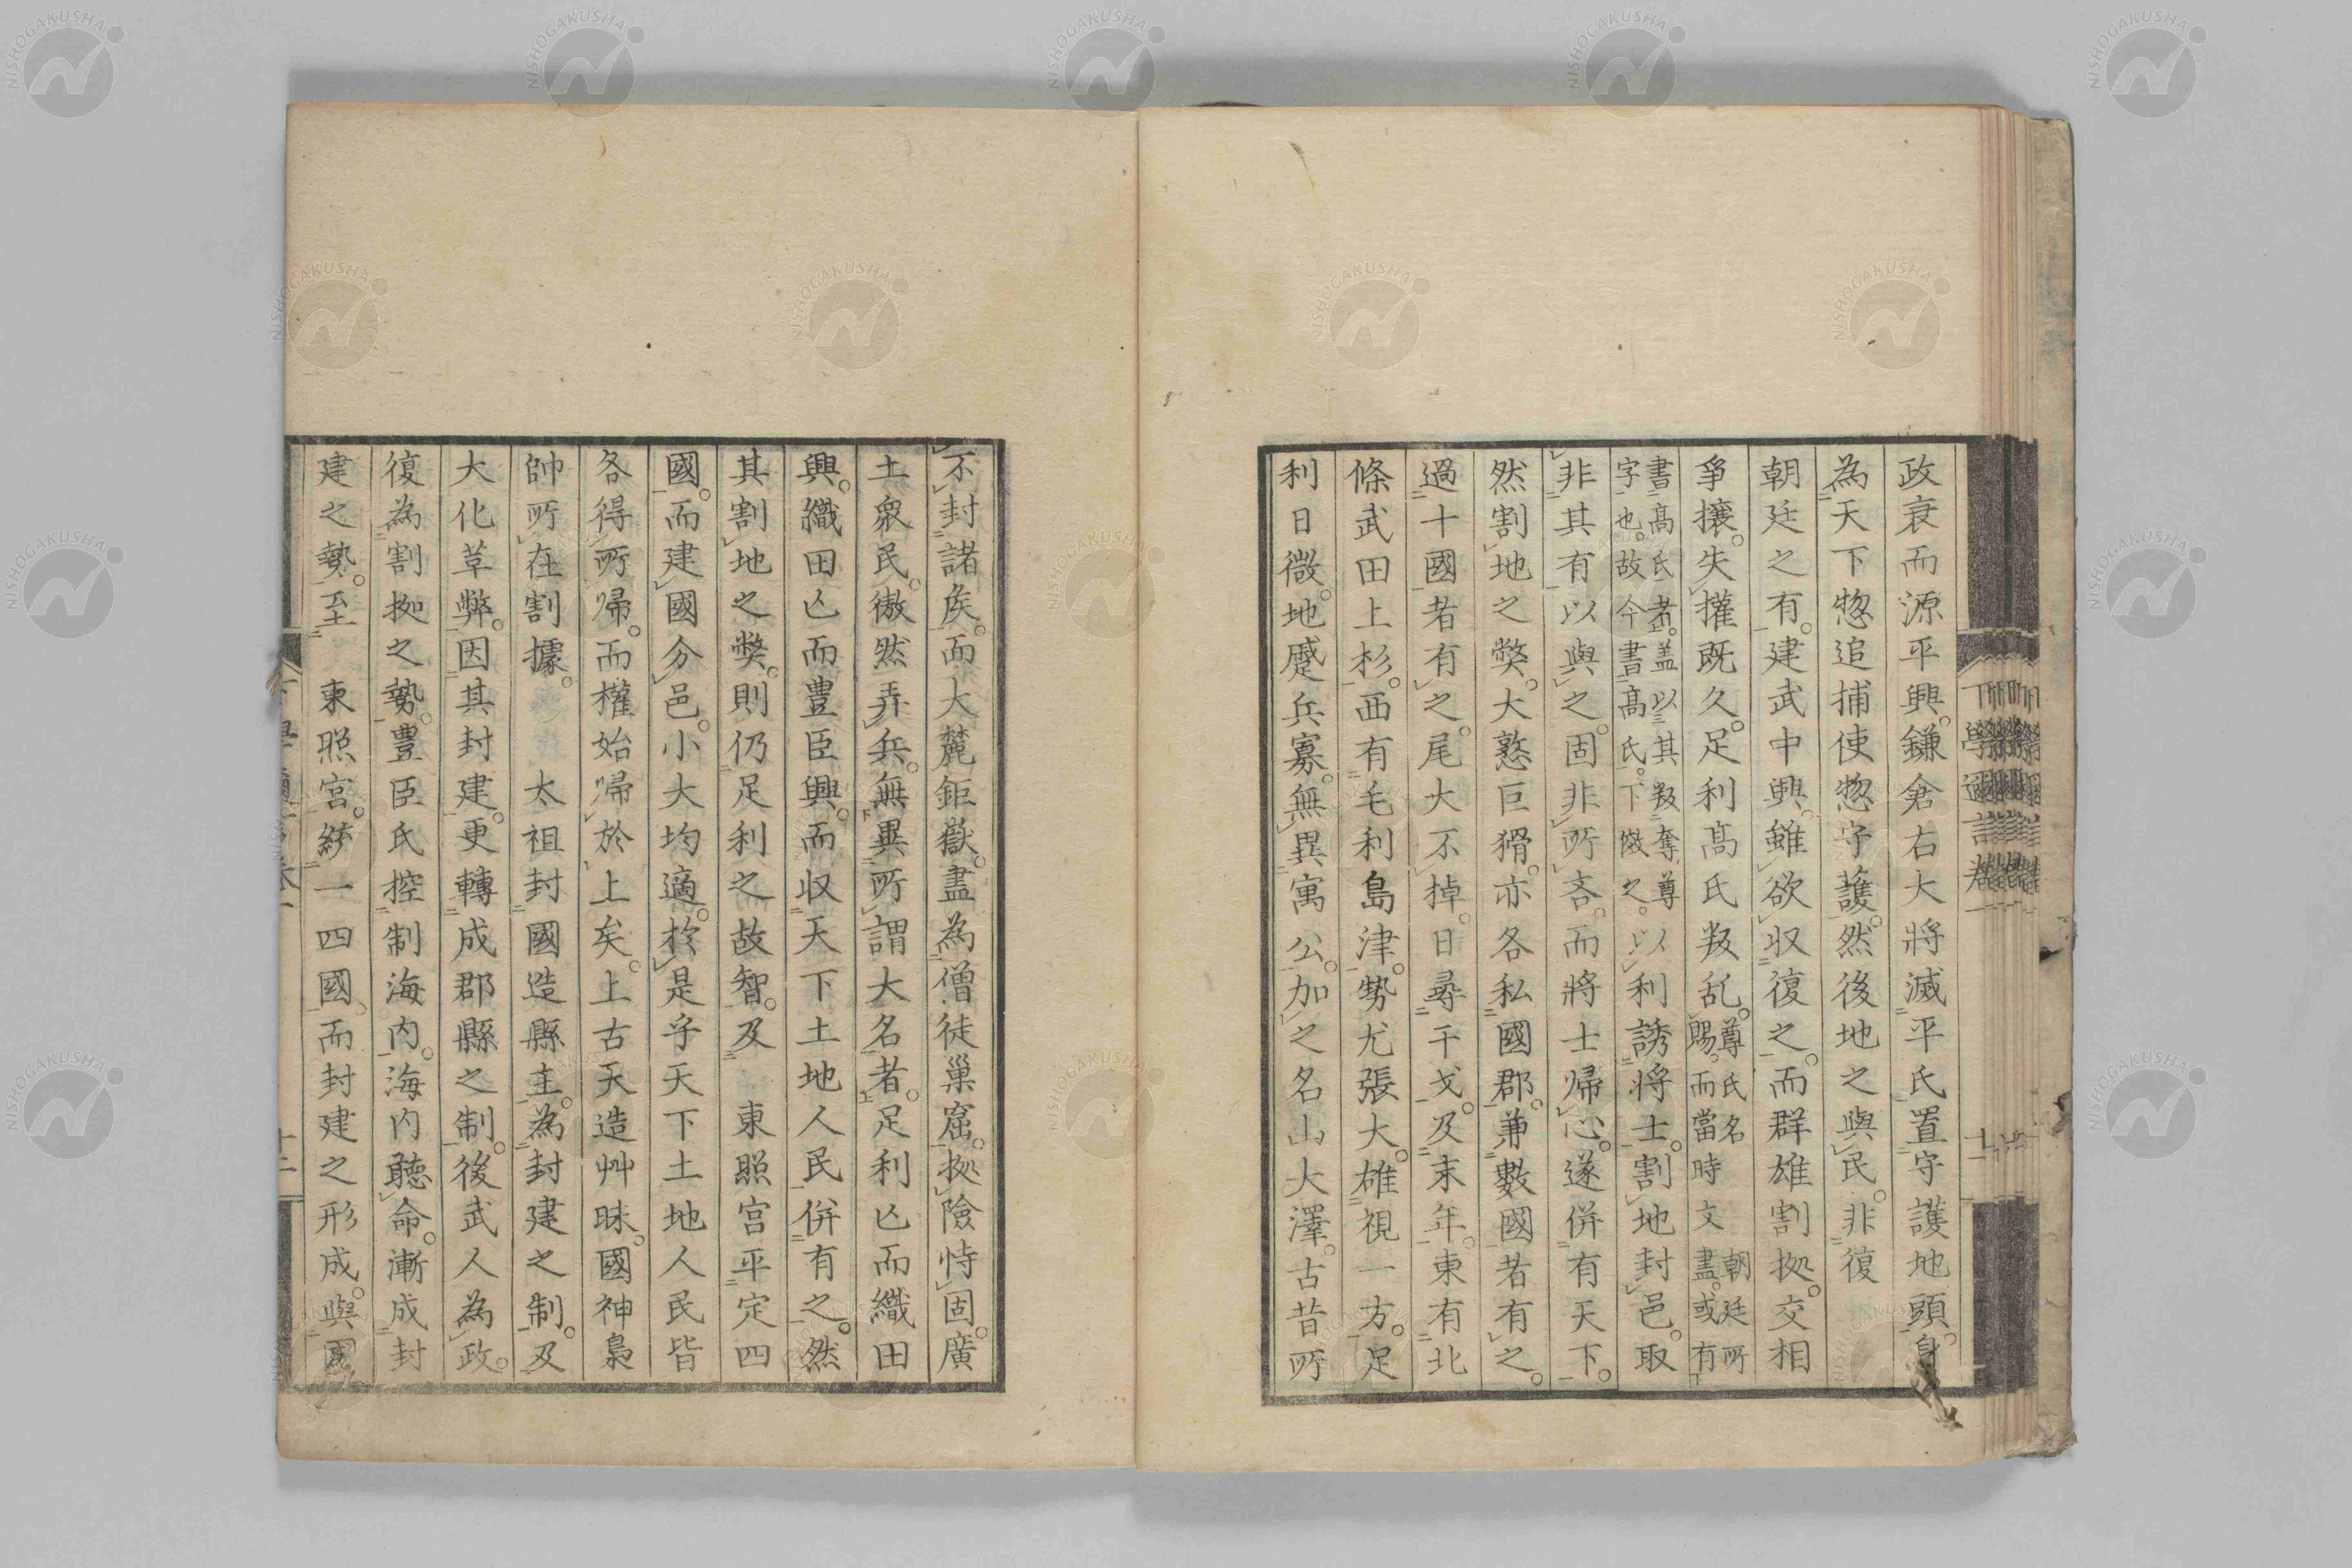 政衰而源平興。鎌倉右大將滅平氏置守護地頭。身
為天下惣追捕使惣守護。然後地之與民。非復
朝廷之有。建武中興。雖欲収復之。而群雄割拠。交相
爭攘。失權既久。足利髙氏叛乱。尊氏名朝廷所
賜。而當時文盡。或有
書髙氏者。盖以其叛奪尊
字也。故今書髙氏。下傚之。以利誘將士。割地封邑。取
非其有以與之。固非所吝。而將士歸心。遂併有天下。
然割地之獘。大憝巨猾。亦各私國郡。兼數國者有之。
過十國者有之。尾大不掉。日尋干戈。及末年。東有北
條武田上杉。西有毛利島津。勢尤張大。雄視一方。足
利日微。地蹙兵寡。無異寓公。加之名山大澤。古昔所
不封諸矦。而大麓鉅嶽。盡為僧徒巢窟。拠險恃固。廣
土衆民。傲然弄兵。無異所謂大名者。足利亾而織田
興。織田亾而豊臣興。而収天下土地人民。併有之。然
其割地之獘。則仍足利之故智。及 東照宮平定四
國。而建國分邑。小大均適。於是乎天下土地人民皆
各得所歸。而權始歸於上矣。上古天造艸昧。國神梟
帥所在割據。 太祖封國造縣主。為封建之制。及
大化革弊。因其封建。更轉成郡縣之制。後武人為政。
復為割拠之勢。豊臣氏控制海内。海内聽命。漸成封
建之勢。至 東照宮。統一四國。而封建之形成。與國
下學邇言卷一
十一
十二
NISHOGAKUSHA